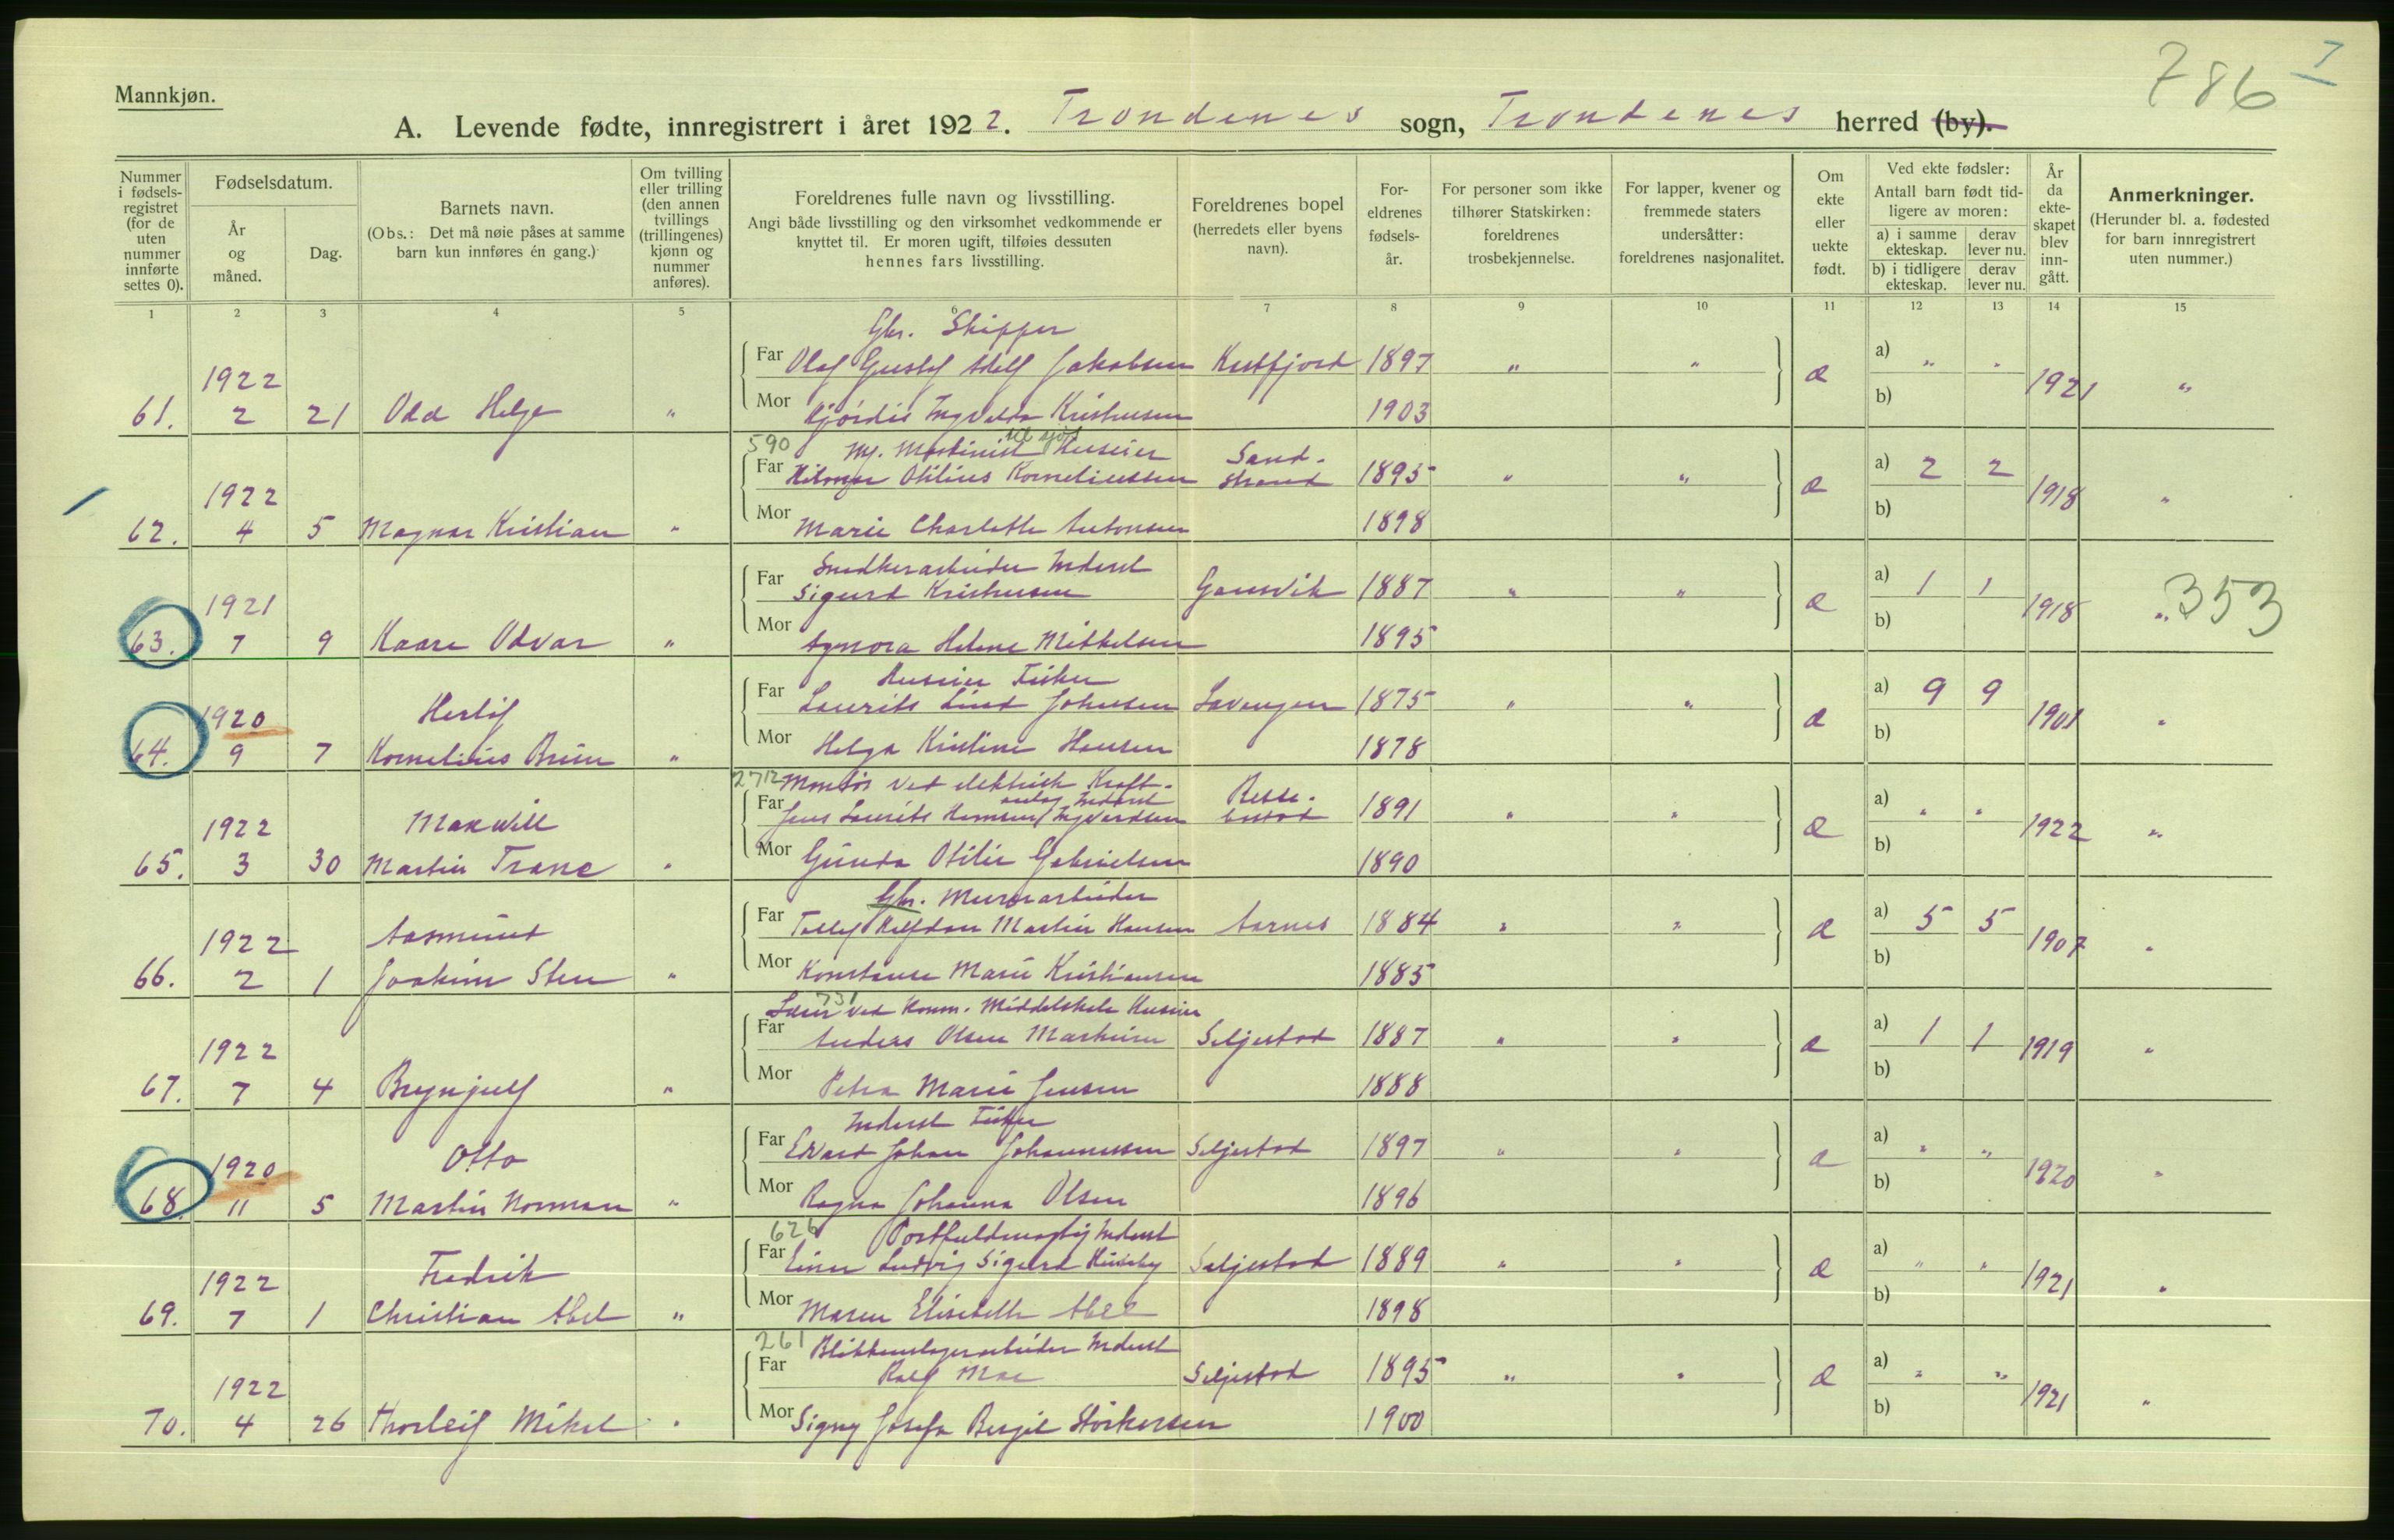 786
7
Mannkjøn.
A. Levende fødte, innregistrert i året 1922. Trondenes sogn, Trondenes herred (by).
Nummer i fødselsregistret (for de uten nummer innførte settes 0).
Fødselsdatum.
År og måned.
Dag.
Barnets navn.
(Obs.: Det må nøie påses at samme barn kun innføres én gang.)
Om tvilling eller trilling (den annen tvillings (trillingenes) kjønn og nummer anføres).
Foreldrenes fulle navn og livsstilling.
Angi både livsstilling og den virksomhet vedkommende er knyttet til. Er moren ugift, tilføies dessuten hennes fars livsstilling.
Foreldrenes bopel (herredets eller byens navn).
Foreldrenes fødselsår.
For personer som ikke tilhører Statskirken: foreldrenes trosbekjennelse.
For lapper, kvener og fremmede staters undersåtter: foreldrenes nasjonalitet.
Om ekte eller uekte født.
Ved ekte fødsler:
Antall barn født tidligere av moren:
a) i samme ekteskap.
derav lever nu.
b) i tidligere ekteskap.
derav lever nu.
År da ekteskapet blev inngått.
Anmerkninger.
(Herunder bl. a. fødested for barn innregistrert uten nummer.)
1 2 3 4 5 6 7 8 9 10 11 12 13 14 15
Gbr. Skipper
61. 1922 2 21 Odd Helge " Far Olaf Gustaf Adolf Jakobsen Kastfjord 1897 " " æ a) " " 1921 "
Mor Hjørdis Ingvalda Kristensen 1903 b)
590 Maskinist til sjøs Huseier
62. 1922 4 5 Magnar Kristian " Far Hilmar Otilius Korneliussen Sandstrand 1895 " " æ a) 2 2 1918 "
Mor Marie Charlotte Antonsen 1898 b)
Snedkerarbeider Inderst
63. 1921 7 9 Kaare Odvar " Far Sigurd Kristensen Gansvik 1887 " " æ a) 1 1 1918 " 353
Mor Agnora Helene Mikkelsen 1895 b)
Huseier Fisker
64. 1920 9 7 Herlof Kornelius Bruun " Far Laurits Lind Johnsen Lavangen 1875 " " æ a) 9 9 1901 "
Mor Helga Kristine Hansen 1878 b)
2712 Montør ved elektrisk Kraftanlæg Inderst
65. 1922 3 30 Maxwill Martin Trane " Far Jens Laurits Hemsen Ingvardsen 1891 " " æ a) " " 1922 "
Mor Gunda Otilie Gabrielsen 1890 b)
Gbr. Murerarbeider
66. 1922 2 1 Aasmund Joakim Sten " Far Tollef Halfdan Martin Hansen Aarnes 1884 " " æ a) 5 5 1907 "
Mor Konstanse Marie Kristiansen 1885 b)
731 Lærer ved Komm. Middelskole Huseier
67. 1922 7 4 Brynjulf " Far Anders Olsen Markussen Seljestad 1887 " " æ a) 1 1 1919 "
Mor Petra Marie Jensen 1888 b)
Inderst Fisker
68. 1920 11 5 Otto Martin Norman " Far Edvard Johan Johannessen Seljestad 1897 " " æ a) " " 1920 "
Mor Ragna Johanna Olsen 1896 b)
626 Postfuldmægtig Inderst
69. 1922 7 1 Fredrik Christian Abel " Far Einar Ludvig Sigurd Huseby Seljestad 1889 " " æ a) " " 1921 "
Mor Maren Elisabeth Abel 1898 b)
261 Blikkenslagerarbeider Inderst
70. 1922 4 26 Thorleif Mikal " Far Ralf Moe Seljestad 1895 " " æ a) " " 1921 "
Mor Signy Josefa Bergit Størkersen 1900 b)